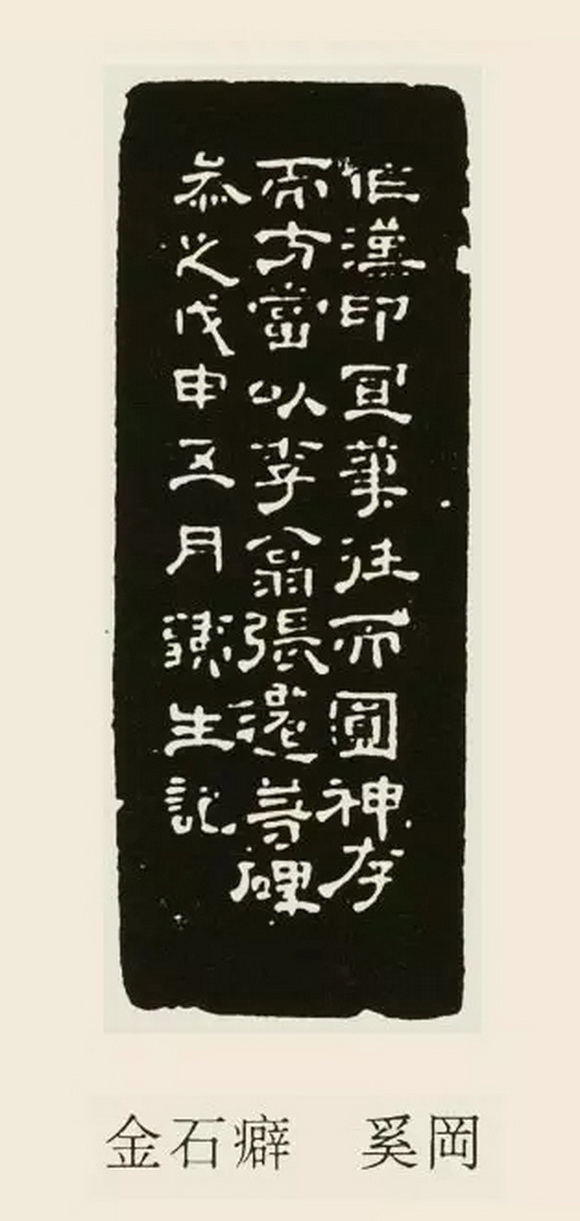 作漢印宜筆往而圓神存
而方當以李翕張遷等碑
叅之戊申五月鐵生記
金石癖 奚岡